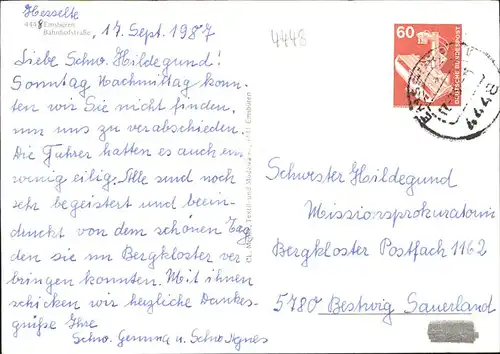 Hesselte
4448 Emsbüren
Bahnhofstraße,
14. Sept. 1987
Liebe Schw. Hildegund!
Sonntag Nachmittag konn-
ten wir Sie nicht finden,
um uns zu verabschieden.
Die Fahrer hatten es auch ein
wenig eilig. Alle sind noch
sehr begeistert und beein-
druckt von dem schönen Tag
den sie im Bergkloster ver
bringen konnten. Mit ihnen
schicken wir herzliche Dankes-
grüße Ihre
Schw. Gemma u. Schw. Agnes
Emsbüren
4448
60
DEUTSCHE BUNDESPOST
Schwester Hildegund
Missionsprokuratorin
Bergkloster Postfach 1162
5780 Bestwig Sauerland